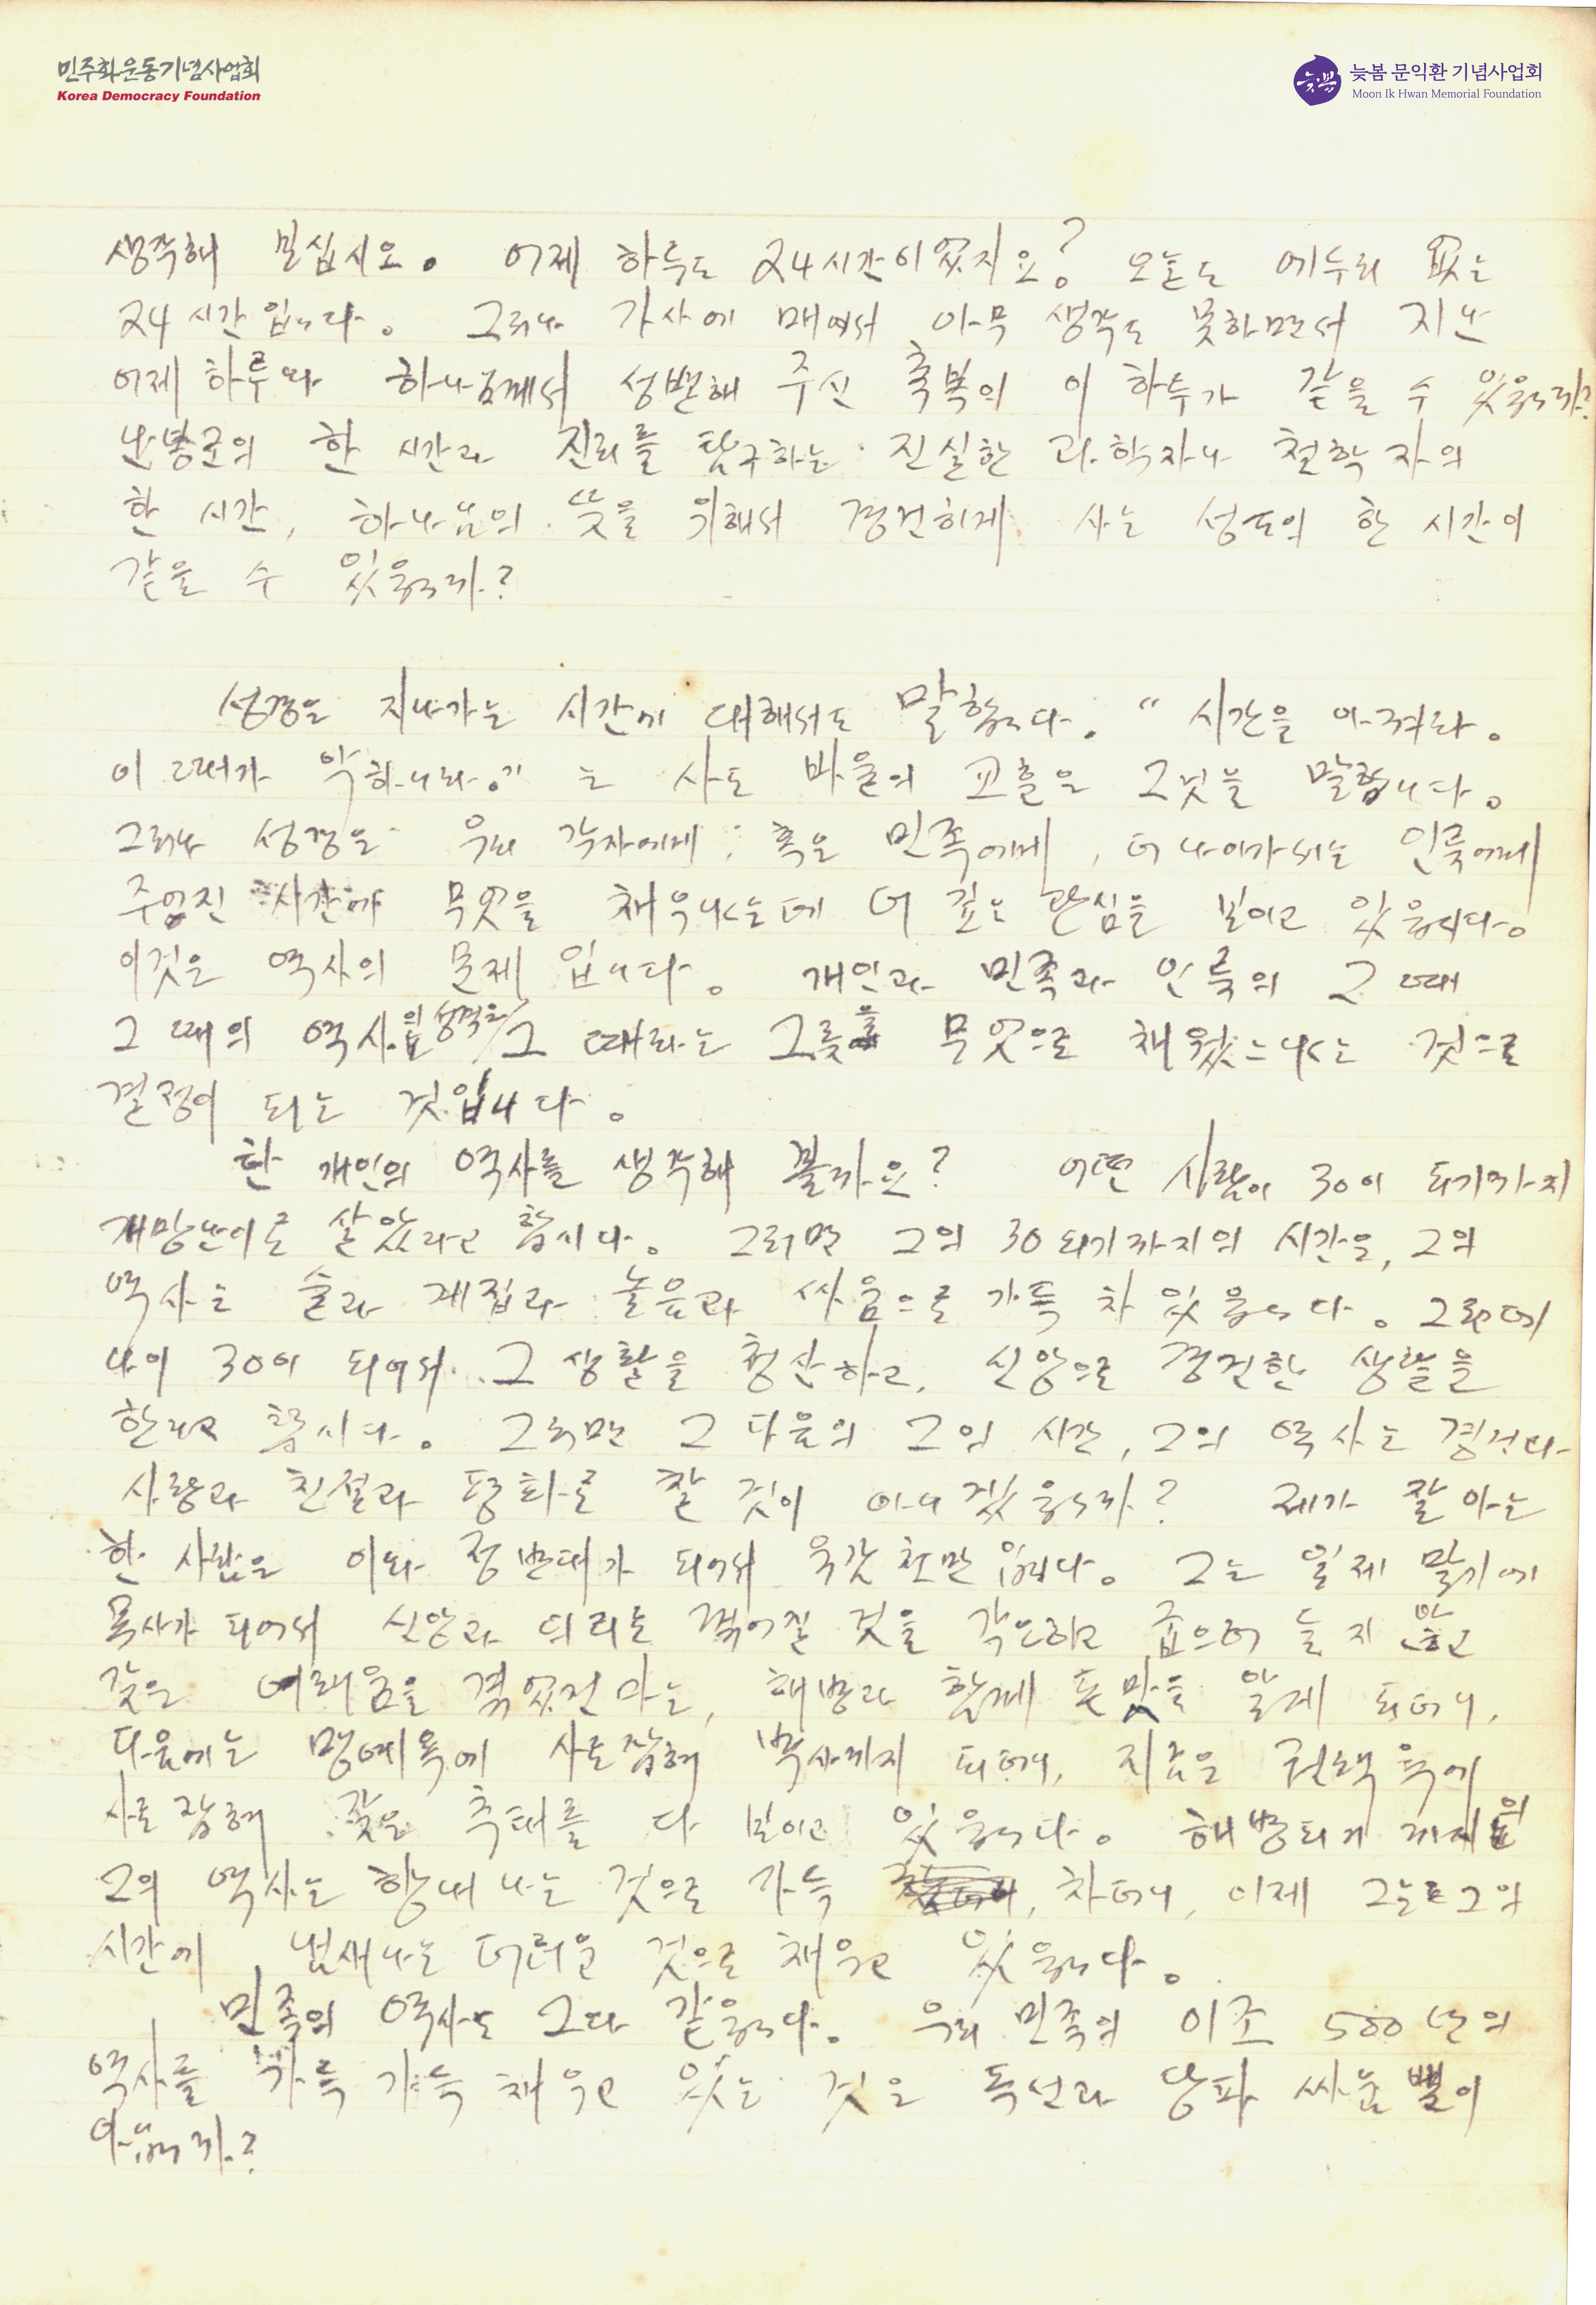 민주화운동기념사업회
Korea Democracy Foundation
늦봄 문익환 기념사업회
Moon Ik Hwan Memorial Foundation
생각해 보십시오. 어제 하루도 24시간이었지요? 오늘도 에누리 없는
24시간입니다. 그러나 가사에 매여서 아무 생각도 못하면서 지난
어제 하루와 하나님께서 성별해 주신 축복의 이 하루가 같을 수 있읍니까?
난봉군의 한 시간과 진리를 탐구하는 진실한 과학자나 철학자의
한 시간, 하나님의 뜻을 위해서 경건하게 사는 성도의 한 시간이
같을 수 있읍니까?
성경은 지나가는 시간에 대해서도 말합니다. “시간을 아껴라.
이 때가 악하니라.” 는 사도 바울의 교훈은 그것을 말합니다.
그러나 성경은 우리 각자에게, 혹은 민족에게, 더 나아가서는 인류에게
주어진 시간에 무엇을 채우냐는데 더 깊은 관심을 보이고 있읍니다.
이것은 역사의 문제입니다. 개인과 민족과 인류의 그 때
그 때의 역사의 성격은 그 때라는 그릇을 무엇으로 채웠느냐는 것으로
결정이 되는 것입니다.
한 개인의 역사를 생각해 볼까요? 어떤 사람이 30이 되기까지
개망난이로 살았다고 합시다. 그러면 그의 30되기까지의 시간은, 그의
역사는 술과 계집과 놀음과 싸움으로 가득 차 있읍니다. 그런데
나이 30이 되어서 그 생활을 청산하고, 신앙으로 경건한 생활을
한다고 합시다. 그러면 그 다음의 그의 시간, 그의 역사는 경건과
사랑과 친절과 평화로 찰 것이 아니겠읍니까? 제가 잘 아는
한 사람은 이와 정반대가 되어서 유감천만입니다. 그는 일제 말기에
목사가 되어서 신앙과 의리는 꺾어질 것을 각오하고 굽으러 들지 않고
갖은 어려움을 겪었건마는, 해방과 함께 돈맛을 알게 되더니,
다음에는 명예욕에 사로잡혀 박사까지 되더니, 지금은 권력욕에
사로잡혀 갖은 추태를 다 보이고 있읍니다. 해방되기 까지의
그의 역사는 향내 나는 것으로 가득 차더니, 이제 그는 그의
시간에 냄새나는 더러운 것으로 채우고 있읍니다.
민족의 역사도 그와 같읍니다. 우리 민족의 이조 500년의
역사를 가득 가득 채우고 있는 것은 독선과 당파 싸움뿐이
아닙니까?